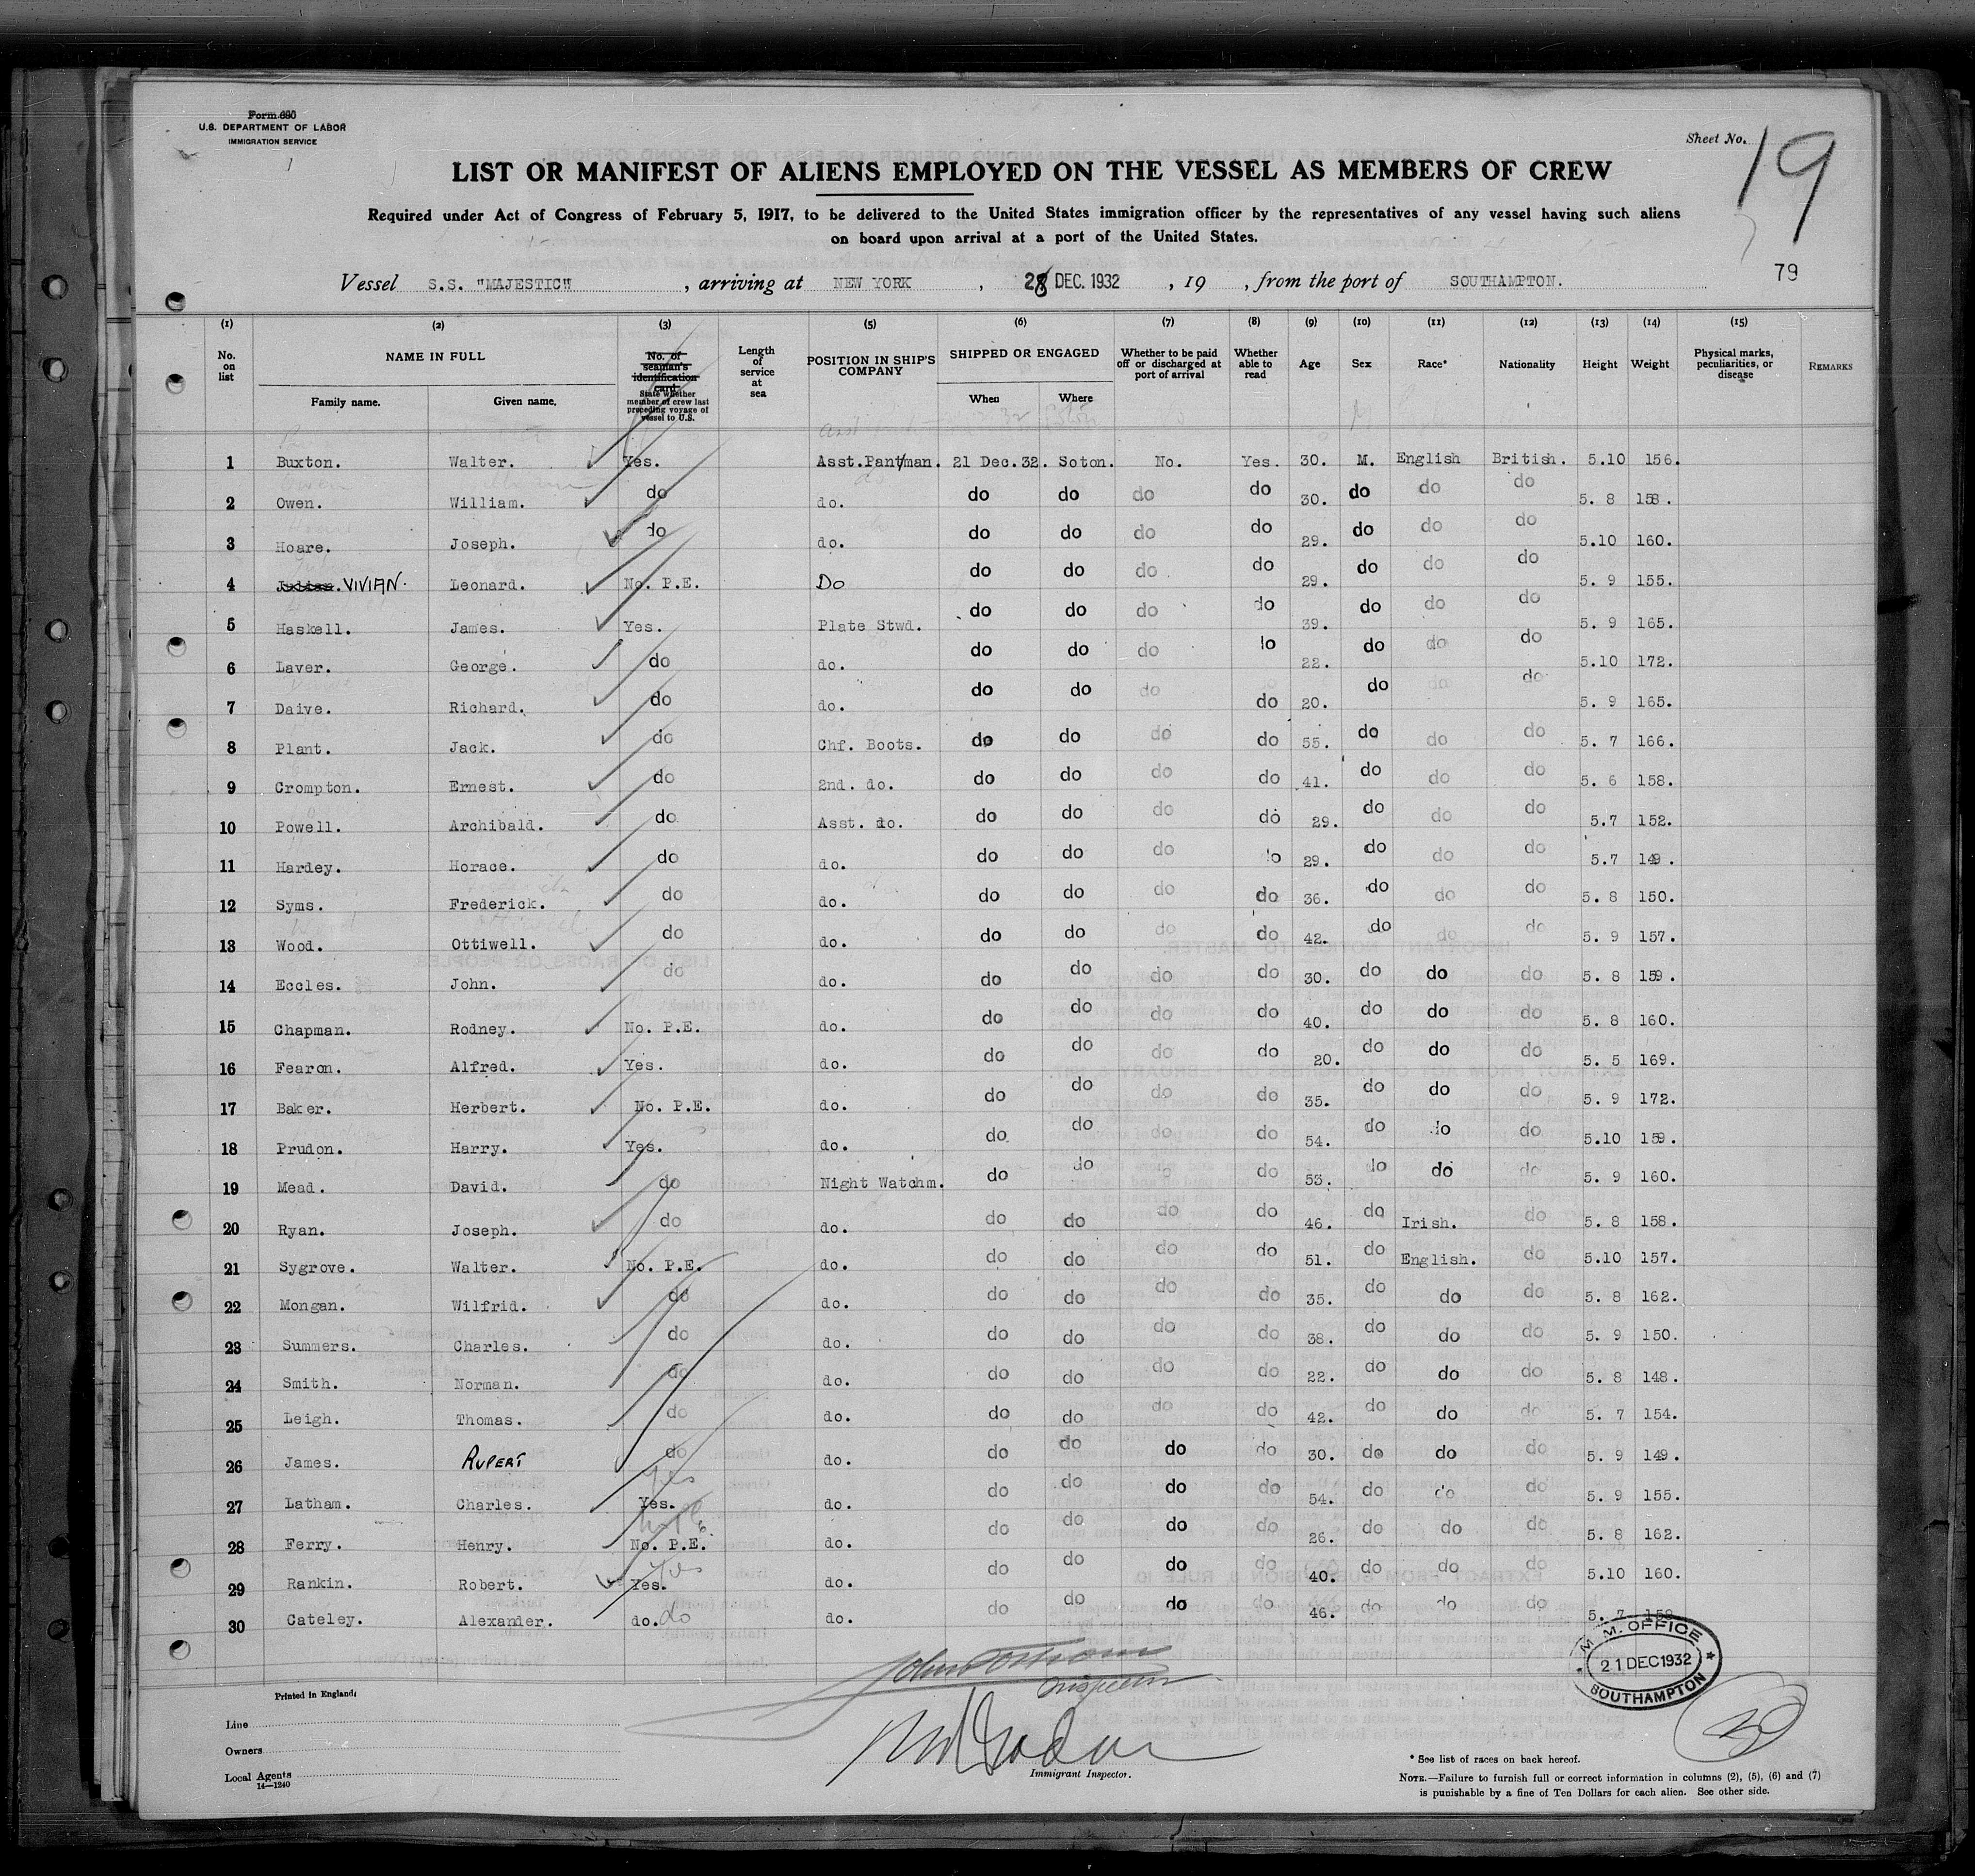 Form 680
U.S. DEPARTMENT OF LABOR
IMMIGRATION SERVICE
Sheet No. 19
LIST OR MANIFEST OF ALIENS EMPLOYED ON THE VESSEL AS MEMBERS OF CREW
Required under Act of Congress of February 5, 1917, to be delivered to the United States immigration officer by the representatives of any vessel having such aliens
on board upon arrival at a port of the United States.
79
Vessel S.S. "MAJESTIC" , arriving at NEW YORK , 28 DEC. 1932 , 19 , from the port of SOUTHAMPTON.
(1) (2) (3) (5) (6) (7) (8) (9) (10) (11) (12) (13) (14) (15)
No. on list NAME IN FULL Family name. Given name. No. of seaman's identification card State whether member of crew last preceding voyage of vessel to U.S. Length of service at sea POSITION IN SHIP'S COMPANY SHIPPED OR ENGAGED When Where Whether to be paid off or discharged at port of arrival Whether able to read Age Sex Race* Nationality Height Weight Physical marks, peculiarities, or disease REMARKS
1 Buxton. Walter. Yes. Asst.Pantman. 21 Dec.32. Soton. No. Yes. 30. M. English British. 5.10 156.
2 Owen. William. do do. do do do do 30. do do do 5. 8 158.
3 Hoare. Joseph. do do. do do do do 29. do do do 5.10 160.
4 Julian. VIVIAN. Leonard. No. P.E. Do do do do do 29. do do do 5. 9 155.
5 Haskell. James. Yes. Plate Stwd. do do do do 39. do do do 5. 9 165.
6 Laver. George. do do. do do do do 22. do do do 5.10 172.
7 Daive. Richard. do do. do do do do 20. do do do 5. 9 165.
8 Plant. Jack. do Chf. Boots. do do do do 55. do do do 5. 7 166.
9 Crompton. Ernest. do 2nd. do. do do do do 41. do do do 5. 6 158.
10 Powell. Archibald. do. Asst. do. do do do do 29. do do do 5.7 152.
11 Hardey. Horace. do do. do do do do 29. do do do 5.7 149.
12 Syms. Frederick. do do. do do do do 36. do do do 5. 8 150.
13 Wood. Ottiwell. do do. do do do do 42. do do do 5. 9 157.
14 Eccles. John. do do. do do do do 30. do do do 5. 8 159.
15 Chapman. Rodney. No. P.E. do. do do do do 40. do do do 5. 8 160.
16 Fearon. Alfred. Yes. do. do do do do 20. do do do 5. 5 169.
17 Baker. Herbert. No. P.E. do. do do do do 35. do do do 5. 9 172.
18 Prudon. Harry. Yes. do. do do do do 54. do do do 5.10 159.
19 Mead. David. do Night Watchm. do do do do 53. do do do 5. 9 160.
20 Ryan. Joseph. do do. do do do do 46. do Irish. do 5. 8 158.
21 Sygrove. Walter. No. P.E. do. do do do do 51. do English. do 5.10 157.
22 Mongan. Wilfrid. do do. do do do do 35. do do do 5. 8 162.
23 Summers. Charles. do do. do do do do 38. do do do 5. 9 150.
24 Smith. Norman. do do. do do do do 22. do do do 5. 8 148.
25 Leigh. Thomas. do do. do do do do 42. do do do 5. 7 154.
26 James. RUPERT do do. do do do do 30. do do do 5. 9 149.
27 Latham. Charles. Yes. Yes do. do do do do 54. do do do 5. 9 155.
28 Ferry. Henry. No. P.E. do. do do do do 26. do do do 5. 8 162.
29 Rankin. Robert. Yes. Yes do. do do do do 40. do do do 5.10 160.
30 Cateley. Alexander. do. do do. do do do do 46. do do do 5. 7 158.
M.M. OFFICE
21 DEC 1932
SOUTHAMPTON
Inspector
Printed in England.
Line
Owners
Local Agents
14—1240
Immigrant Inspector.
* See list of races on back hereof.
NOTE.—Failure to furnish full or correct information in columns (2), (5), (6) and (7)
is punishable by a fine of Ten Dollars for each alien. See other side.